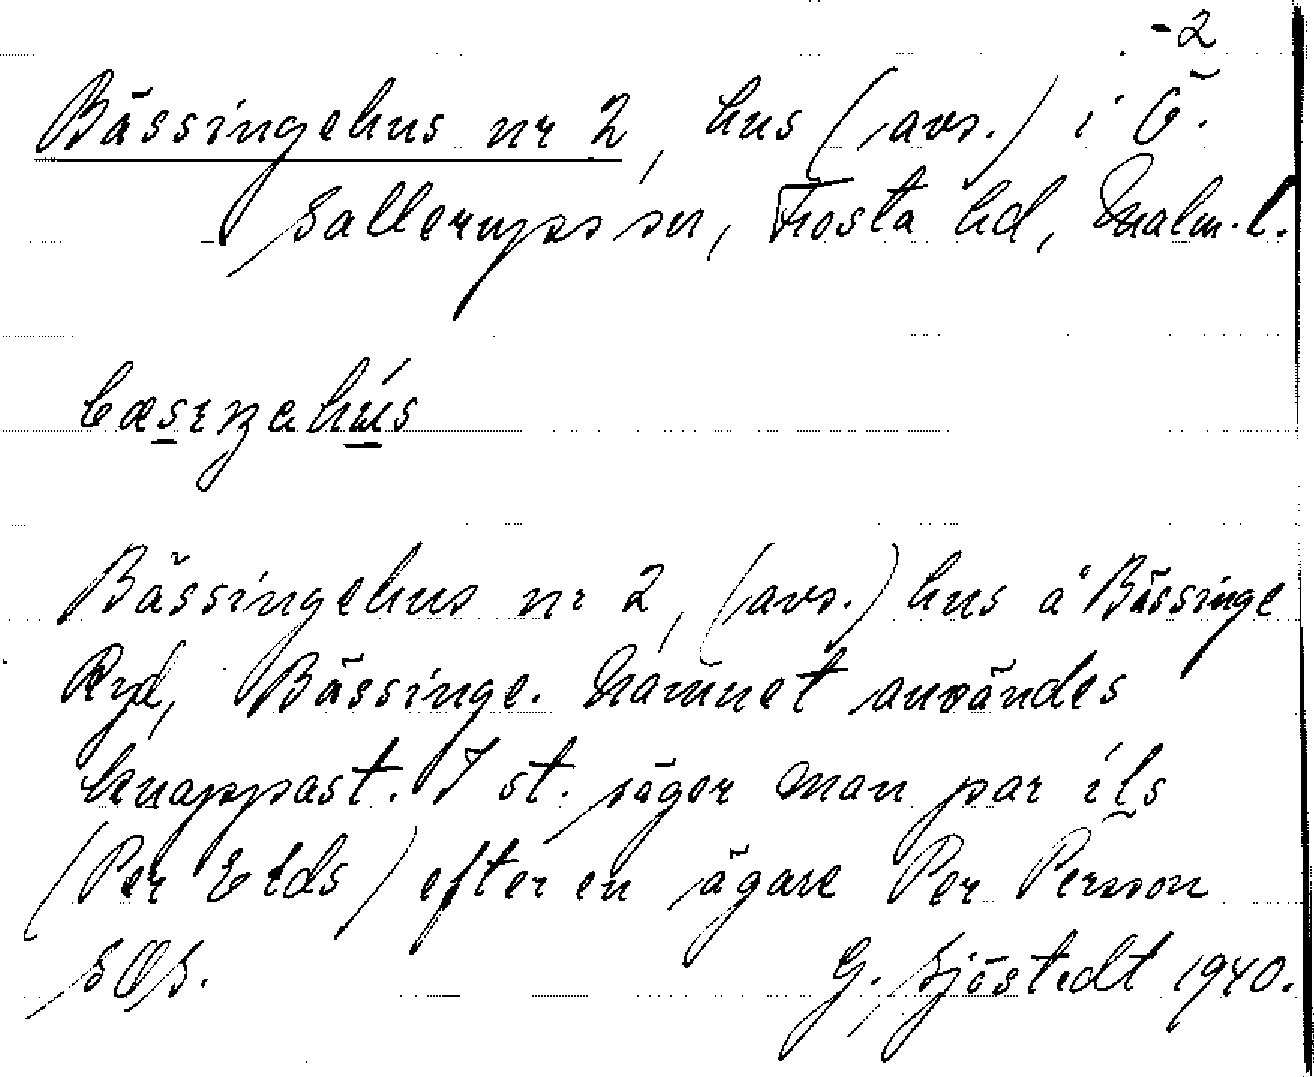 -2
Bässingehus nr 2, hus (avs.) i Ö.
Sallerups sn, Frosta hd, Malm.l.
Bässingehus nr 2, (avs.) hus å Bässinge
Ryd, Bässinge. Namnet användes
knappast. I st. säger man par ils
(Per Elds) efter en ägare Per Persson
G. Sjöstedt 1940.